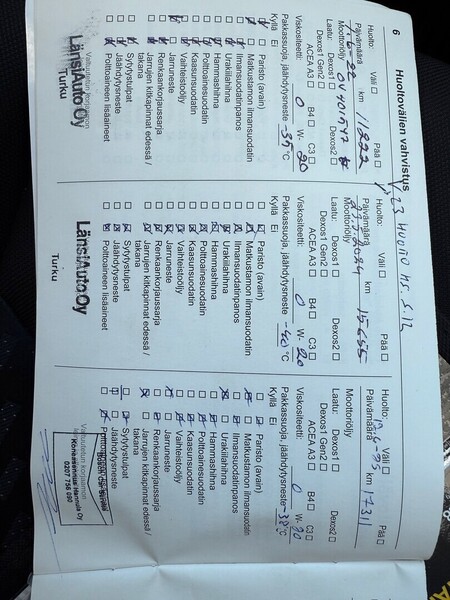 6
Huoltovälien vahvistus
Huolto: Väli Pää
Päivämäärä km
Moottoriöljy
Laatu: Dexos1 Dexos2
Dexos1 Gen2
ACEA A3 B4 C3
Viskositeetti: 0 W- 20
Pakkassuoja, jäähdytysneste -35 °C
Kyllä Ei
Paristo (avain)
Matkustamon ilmansuodatin
Ilmansuodatinpanos
Urakiilahihna
Hammashihna
Polttoainesuodatin
Kaasunsuodatin
Vaihteistoöljy
Jarruneste
Renkaankorjaussarja
Jarrujen kitkapinnat edessä /
takana
Sytytystulpat
Jäähdytysneste
Polttoaineen lisäaineet
LänsiAuto Oy
Turku
Huolto: Väli Pää
Päivämäärä km
Moottoriöljy
Laatu: Dexos1 Dexos2
Dexos1 Gen2
ACEA A3 B4 C3
Viskositeetti: 0 W- 20
Pakkassuoja, jäähdytysneste -40 °C
Kyllä Ei
Paristo (avain)
Matkustamon ilmansuodatin
Ilmansuodatinpanos
Urakiilahihna
Hammashihna
Polttoainesuodatin
Kaasunsuodatin
Vaihteistoöljy
Jarruneste
Renkaankorjaussarja
Jarrujen kitkapinnat edessä /
takana
Sytytystulpat
Jäähdytysneste
Polttoaineen lisäaineet
LänsiAuto Oy
Turku
Huolto: Väli Pää
Päivämäärä km
Moottoriöljy
Laatu: Dexos1 Dexos2
Dexos1 Gen2
ACEA A3 B4 C3
Viskositeetti: 0 W-
Pakkassuoja, jäähdytysneste -38 °C
Kyllä Ei
Paristo (avain)
Matkustamon ilmansuodatin
Ilmansuodatinpanos
Urakiilahihna
Hammashihna
Polttoainesuodatin
Kaasunsuodatin
Vaihteistoöljy
Jarruneste
Renkaankorjaussarja
Jarrujen kitkapinnat edessä /
takana
Sytytystulpat
Jäähdytysneste
Bosch Car Service
Konkarannus Hannula Oy
0207 756 090